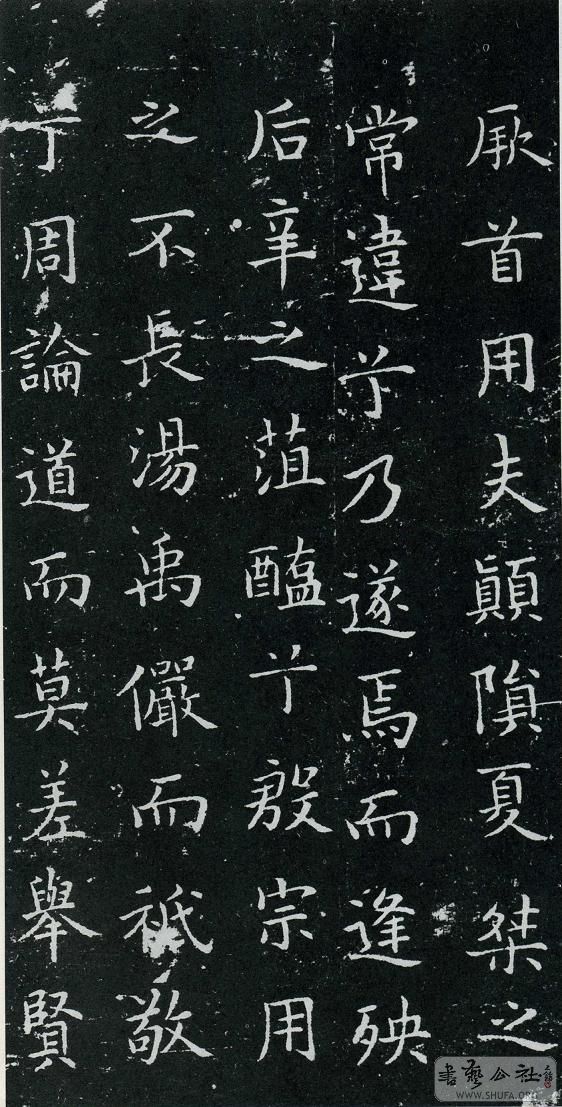 厥首用夫顛隕夏桀之
常違兮乃遂焉而逢殃
后辛之菹醢兮殷宗用
之不長湯禹儼而祗敬
兮周論道而莫差舉賢
書藝公社
WWW.SHUFA.ORG